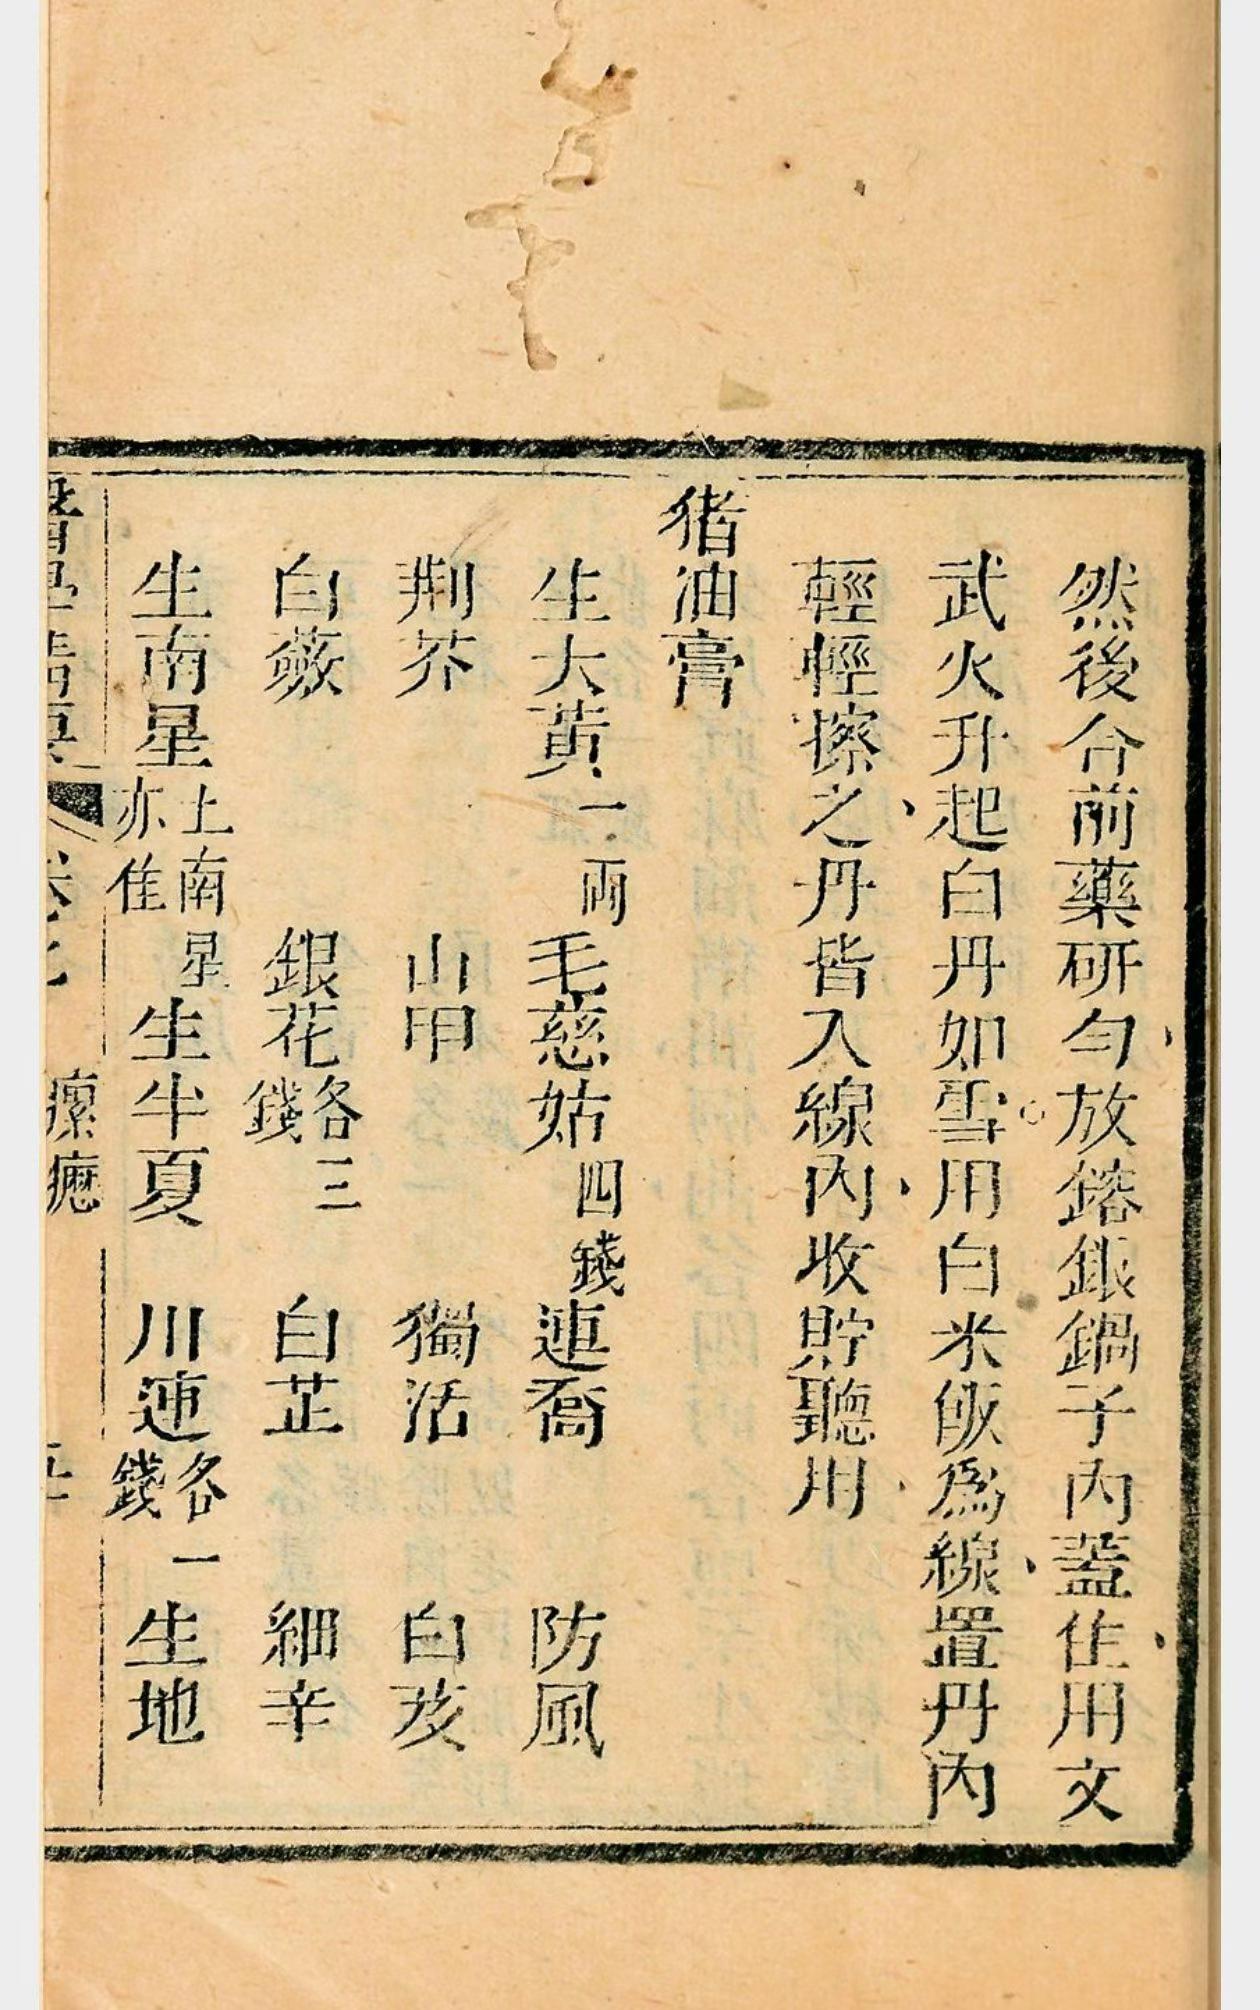 然後合前藥研勻放鎔銀鍋子內蓋住用文
武火升起白丹如雪用白米飯為線置丹內
輕輕擦之丹皆入線內收貯聽用
猪油膏
生大黃一兩 毛慈姑四錢 連喬 防風
荆芥 山甲 獨活 白芨
白蘞 銀花各三錢 白芷 細辛
生南星土南星亦佳 生半夏 川連各一錢 生地
瘰癧